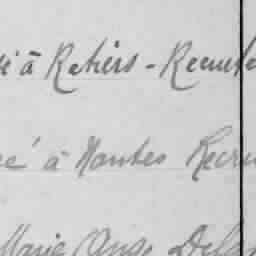 à Retiers - Recrute
à Nantes Recru
Marie Ange Dela